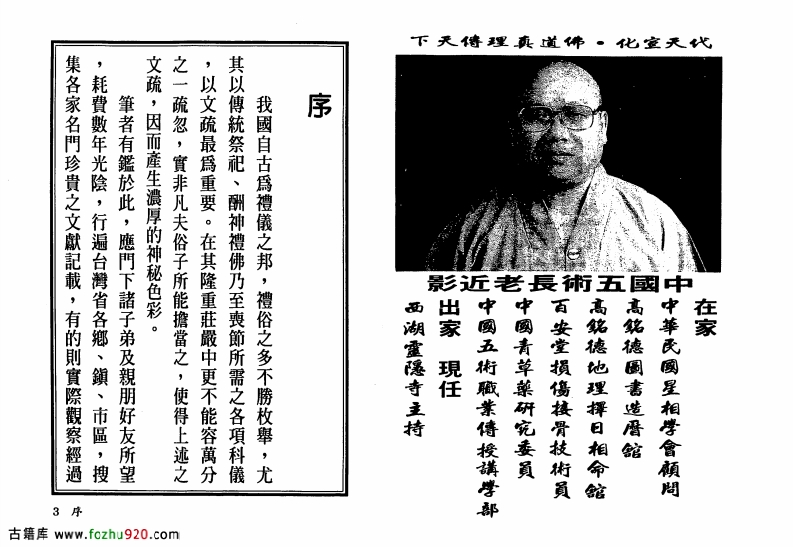 代天宣化・佛道真理傳天下
中國五術長老近影
在家
中華民國星相學會顧問
高銘德圖書造曆館
高銘德地理擇日相命館
百安堂損傷接骨技術員
中國青草藥研究委員
中國五術職業傳授講學部
出家 現任
西湖靈隱寺主持
序
我國自古爲禮儀之邦，禮俗之多不勝枚舉，尤
其以傳統祭祀、酬神禮佛乃至喪節所需之各項科儀
，以文疏最爲重要。在其隆重莊嚴中更不能容萬分
之一疏忽，實非凡夫俗子所能擔當之，使得上述之
文疏，因而產生濃厚的神秘色彩。
筆者有鑑於此，應門下諸子弟及親朋好友所望
，耗費數年光陰，行遍台灣省各鄉、鎮、市區，搜
集各家名門珍貴之文獻記載，有的則實際觀察經過
3 序
古籍库 www.fozhu920.com